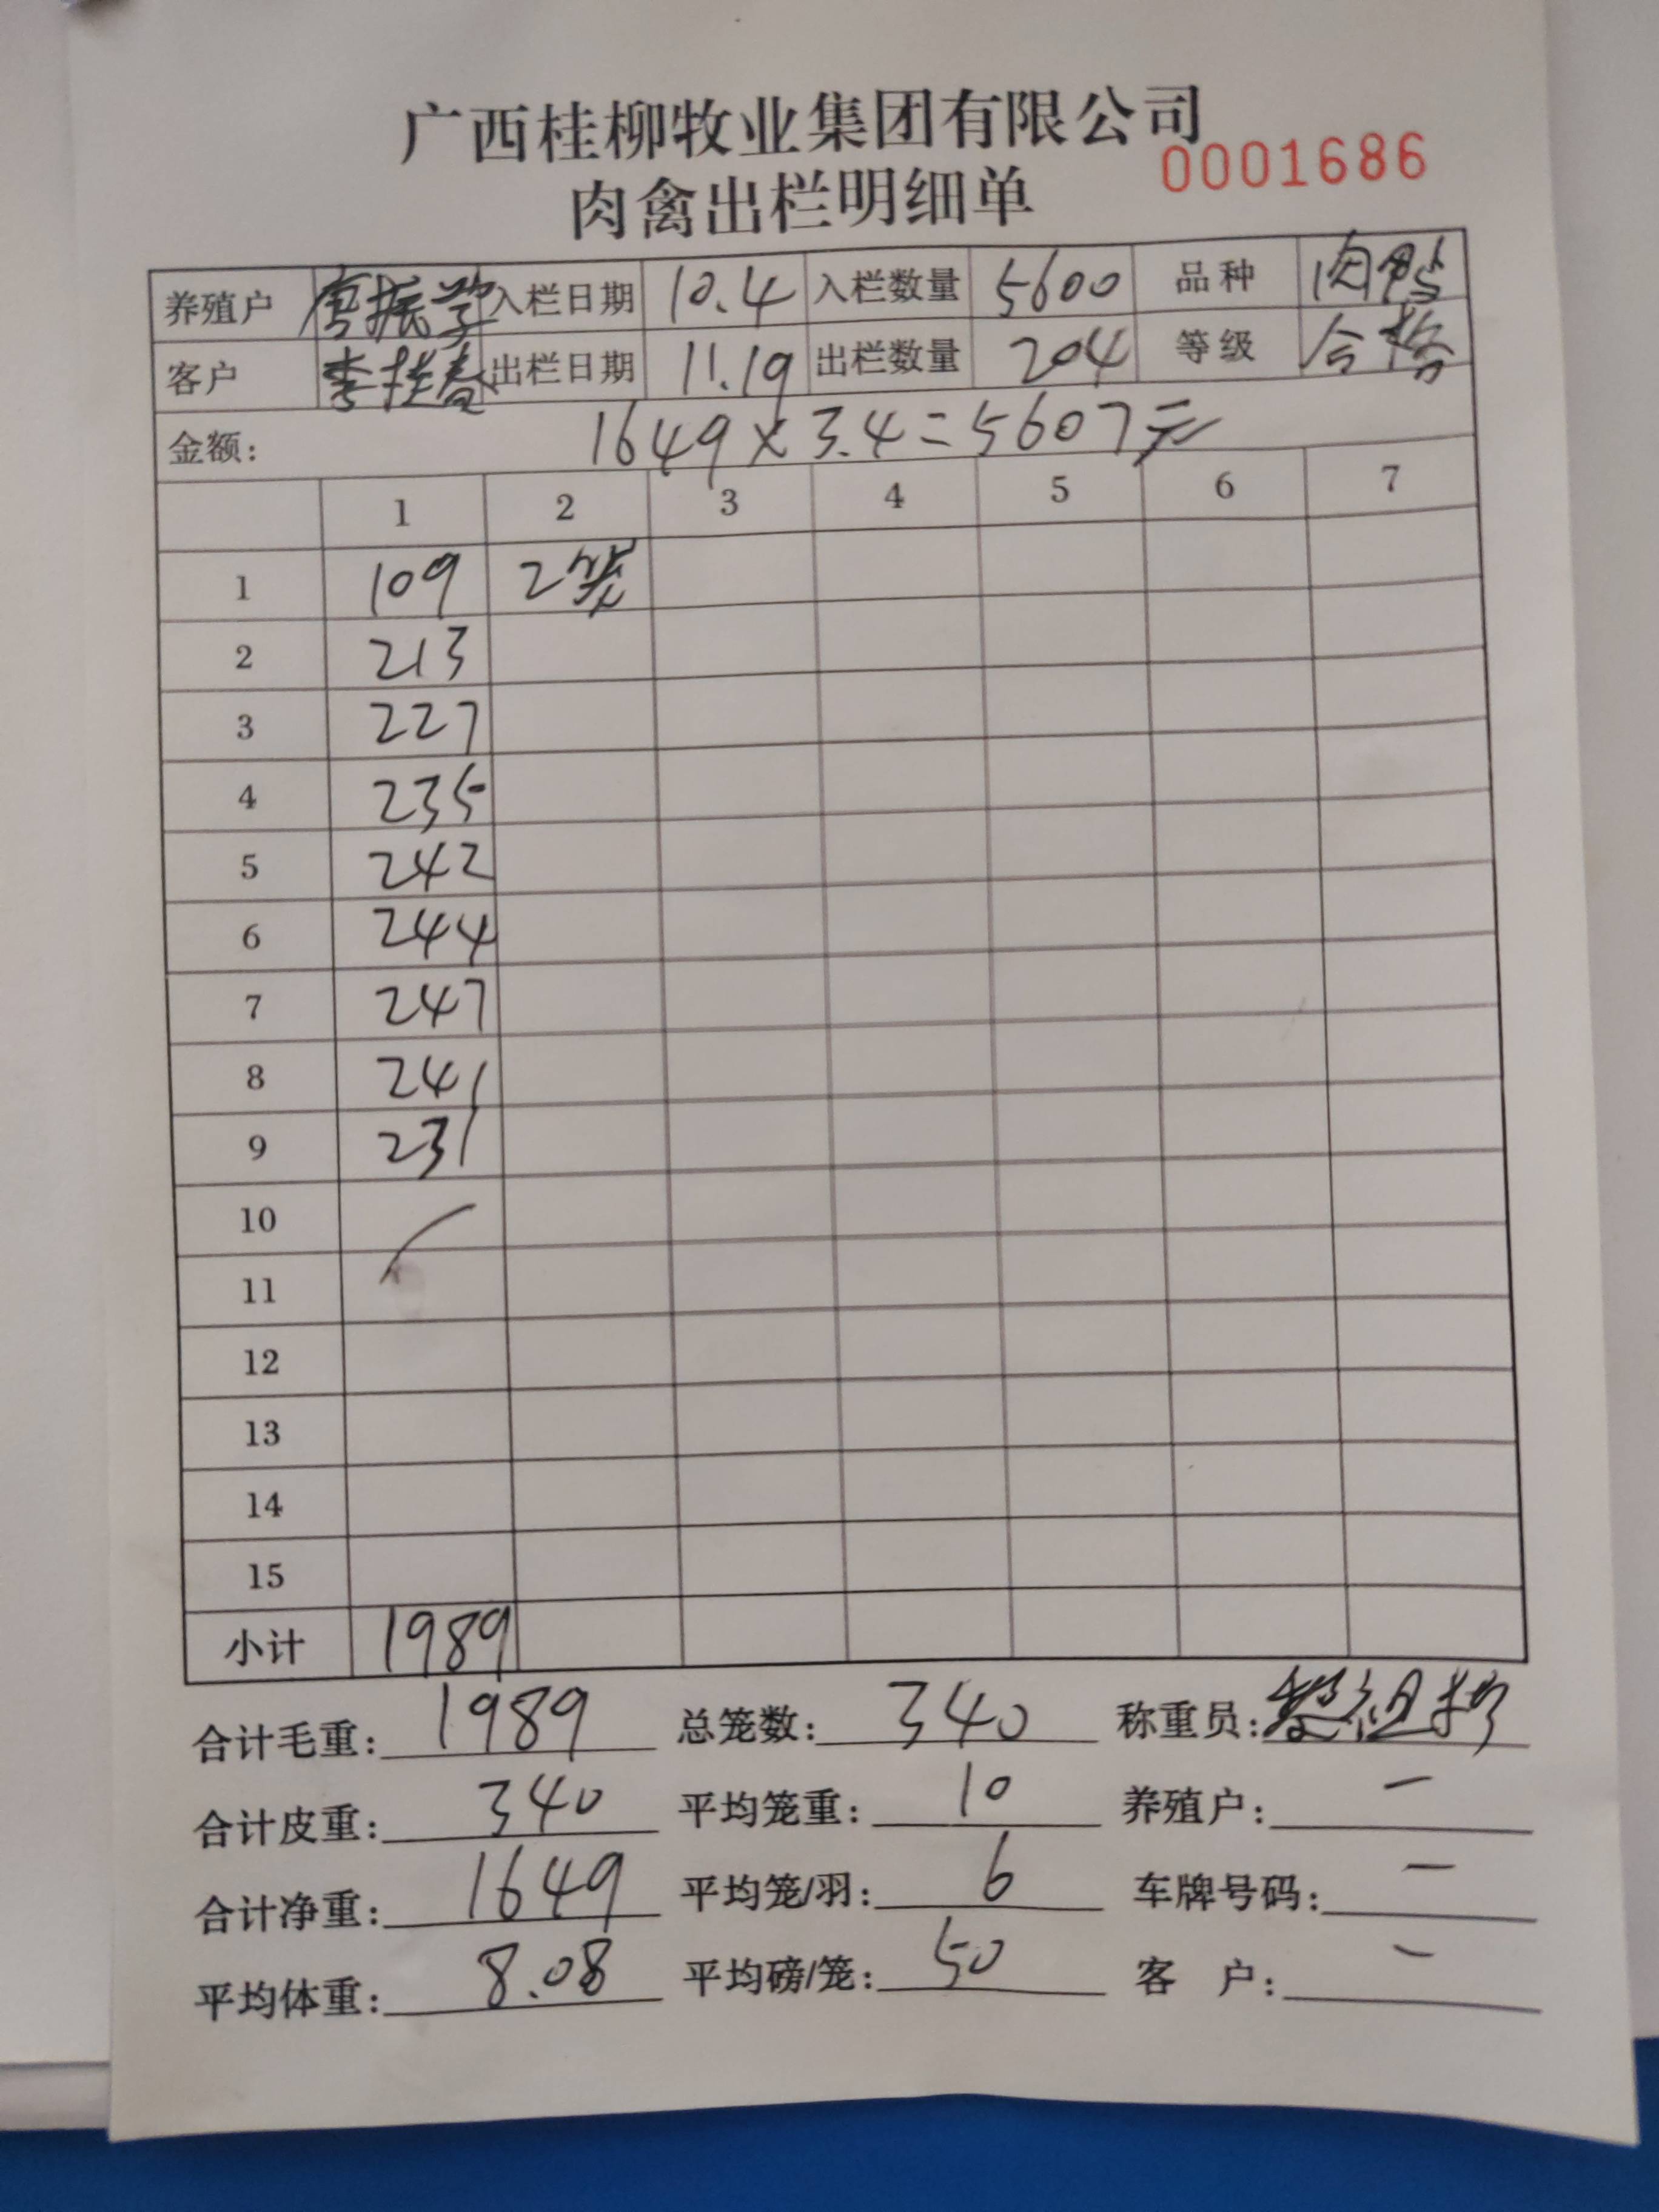 广西桂柳牧业集团有限公司
0001686
肉禽出栏明细单
养殖户 唐振学 入栏日期 10.4 入栏数量 5600 品种 肉鸭
客户 李桂春 出栏日期 11.19 出栏数量 204 等级 合格
金额: 1649×3.4=5607元
1 2 3 4 5 6 7
1 109 2笼
2 213
3 227
4 235
5 242
6 244
7 247
8 241
9 231
10
11
12
13
14
15
小计 1989
合计毛重: 1989 总笼数: 340 称重员:
合计皮重: 340 平均笼重: 10 养殖户: —
合计净重: 1649 平均笼/羽: 6 车牌号码: —
平均体重: 8.08 平均磅/笼: 50 客 户: —